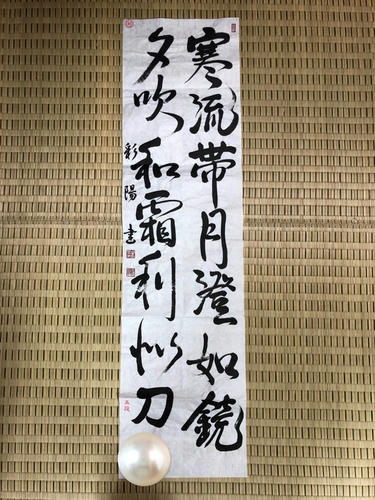 寒流帯月澄如鏡
夕吹和霜利似刀
彩陽書